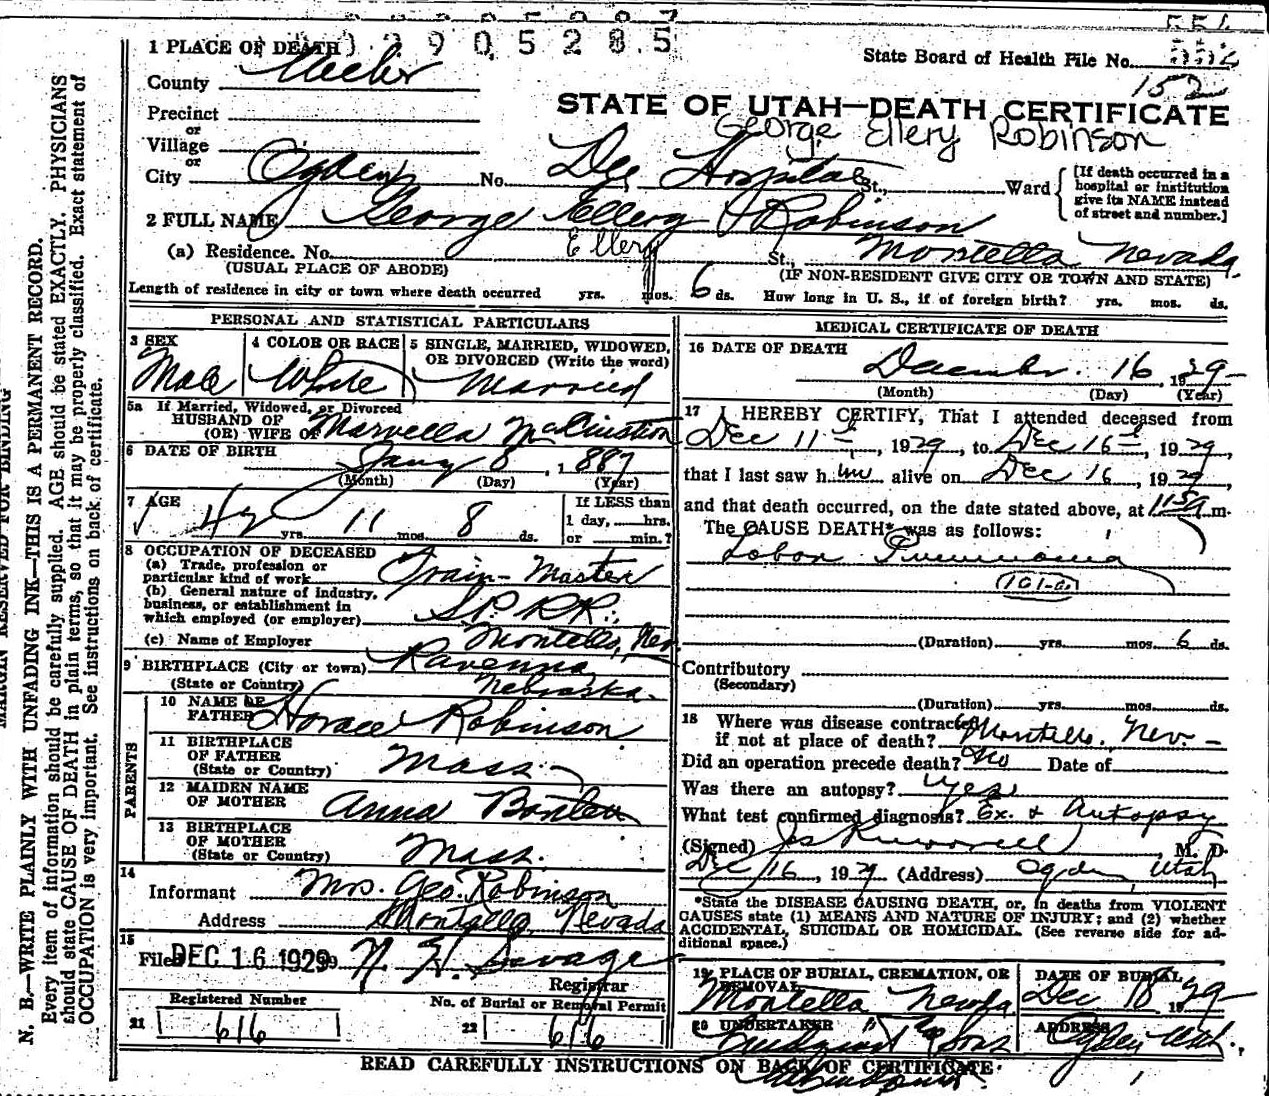 290528.5
State Board of Health File No. 552
152
1 PLACE OF DEATH
County Weber
STATE OF UTAH—DEATH CERTIFICATE
Precinct
or
George Ellery Robinson
Village
or
City Ogden No. Dee Hospital St., Ward
[If death occurred in a hospital or institution give its NAME instead of street and number.]
2 FULL NAME George Ellery Robinson
Ellery
(a) Residence. No. St., Montello Nevada.
(USUAL PLACE OF ABODE) (IF NON-RESIDENT GIVE CITY OR TOWN AND STATE)
Length of residence in city or town where death occurred yrs. mos. 6 ds. How long in U. S., if of foreign birth? yrs. mos. ds.
PERSONAL AND STATISTICAL PARTICULARS
3 SEX 4 COLOR OR RACE 5 SINGLE, MARRIED, WIDOWED, OR DIVORCED (Write the word)
Male White Married
5a If Married, Widowed, or Divorced
HUSBAND OF
(OR) WIFE OF Marvella
6 DATE OF BIRTH Jany 8, 1887
(Month) (Day) (Year)
7 AGE 42 yrs. 11 mos. 8 ds.
If LESS than
1 day, hrs.
or min.?
8 OCCUPATION OF DECEASED
(a) Trade, profession or
particular kind of work Train-Master
(b) General nature of industry,
business, or establishment in
which employed (or employer) S.P. RR.
(c) Name of Employer Montello, Nev.
9 BIRTHPLACE (City or town) Ravenna,
(State or Country) Nebraska.
PARENTS
10 NAME OF
FATHER Horace Robinson
11 BIRTHPLACE
OF FATHER
(State or Country) Mass.
12 MAIDEN NAME
OF MOTHER Anna
13 BIRTHPLACE
OF MOTHER
(State or Country) Mass.
14
Informant Mrs. Geo. Robinson
Address Montello, Nevada
15
Filed DEC 16 1929 Savage
Registrar
Registered Number No. of Burial or Removal Permit
21 616 22 616
MEDICAL CERTIFICATE OF DEATH
16 DATE OF DEATH
December 16, 1929
(Month) (Day) (Year)
17 I HEREBY CERTIFY, That I attended deceased from
Dec 11, 1929, to Dec 16, 1929,
that I last saw him alive on Dec 16, 1929
and that death occurred, on the date stated above, at m.
The CAUSE DEATH* was as follows:
Lobar Pneumonia
101-a
(Duration) yrs. mos. 6 ds.
Contributory
(Secondary)
(Duration) yrs. mos. ds.
18 Where was disease contracted
if not at place of death? Montello, Nev.
Did an operation precede death? No Date of
Was there an autopsy? yes
What test confirmed diagnosis? Ex. & Autopsy
(Signed) , M. D.
Dec 16, 1929 (Address) Ogden, Utah
*State the DISEASE CAUSING DEATH, or, in deaths from VIOLENT
CAUSES state (1) MEANS AND NATURE OF INJURY; and (2) whether
ACCIDENTAL, SUICIDAL OR HOMICIDAL. (See reverse side for ad-
ditional space.)
19 PLACE OF BURIAL, CREMATION, OR REMOVAL DATE OF BURIAL
Montello Nevada Dec 18, 1929
20 UNDERTAKER ADDRESS
& Sons Ogden Utah.
READ CAREFULLY INSTRUCTIONS ON BACK OF CERTIFICATE
MARGIN RESERVED FOR BINDING
N. B.—WRITE PLAINLY WITH UNFADING INK—THIS IS A PERMANENT RECORD.
Every item of information should be carefully supplied. AGE should be stated EXACTLY. PHYSICIANS
should state CAUSE OF DEATH in plain terms, so that it may be properly classified. Exact statement of
OCCUPATION is very important. See instructions on back of certificate.